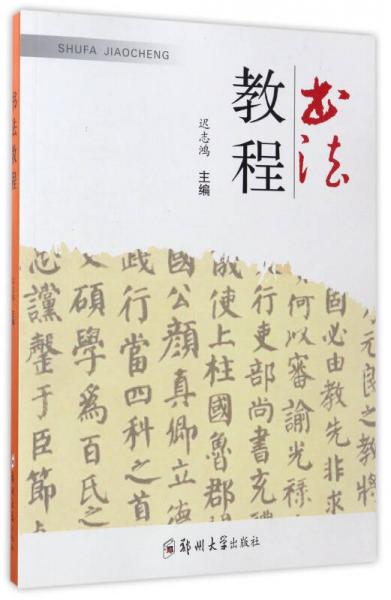 SHUFA JIAOCHENG
书法
教程
迟志鸿 主编
固必由教先非求
何以審諭光祿
行吏部尚書充
使上柱國魯郡
國公顏真卿立德
行當四科之首
碩學為百氏之
讜罄于臣節
郑州大学出版社
书法教程